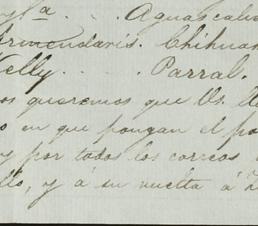 y Ca. . . . Aguascali
Armendaris. Chihua
Kelly . . . . Parral.
os queremos que Us. ll
o en que pongan el po
y por todos los correos
llo, y á su vuelta á